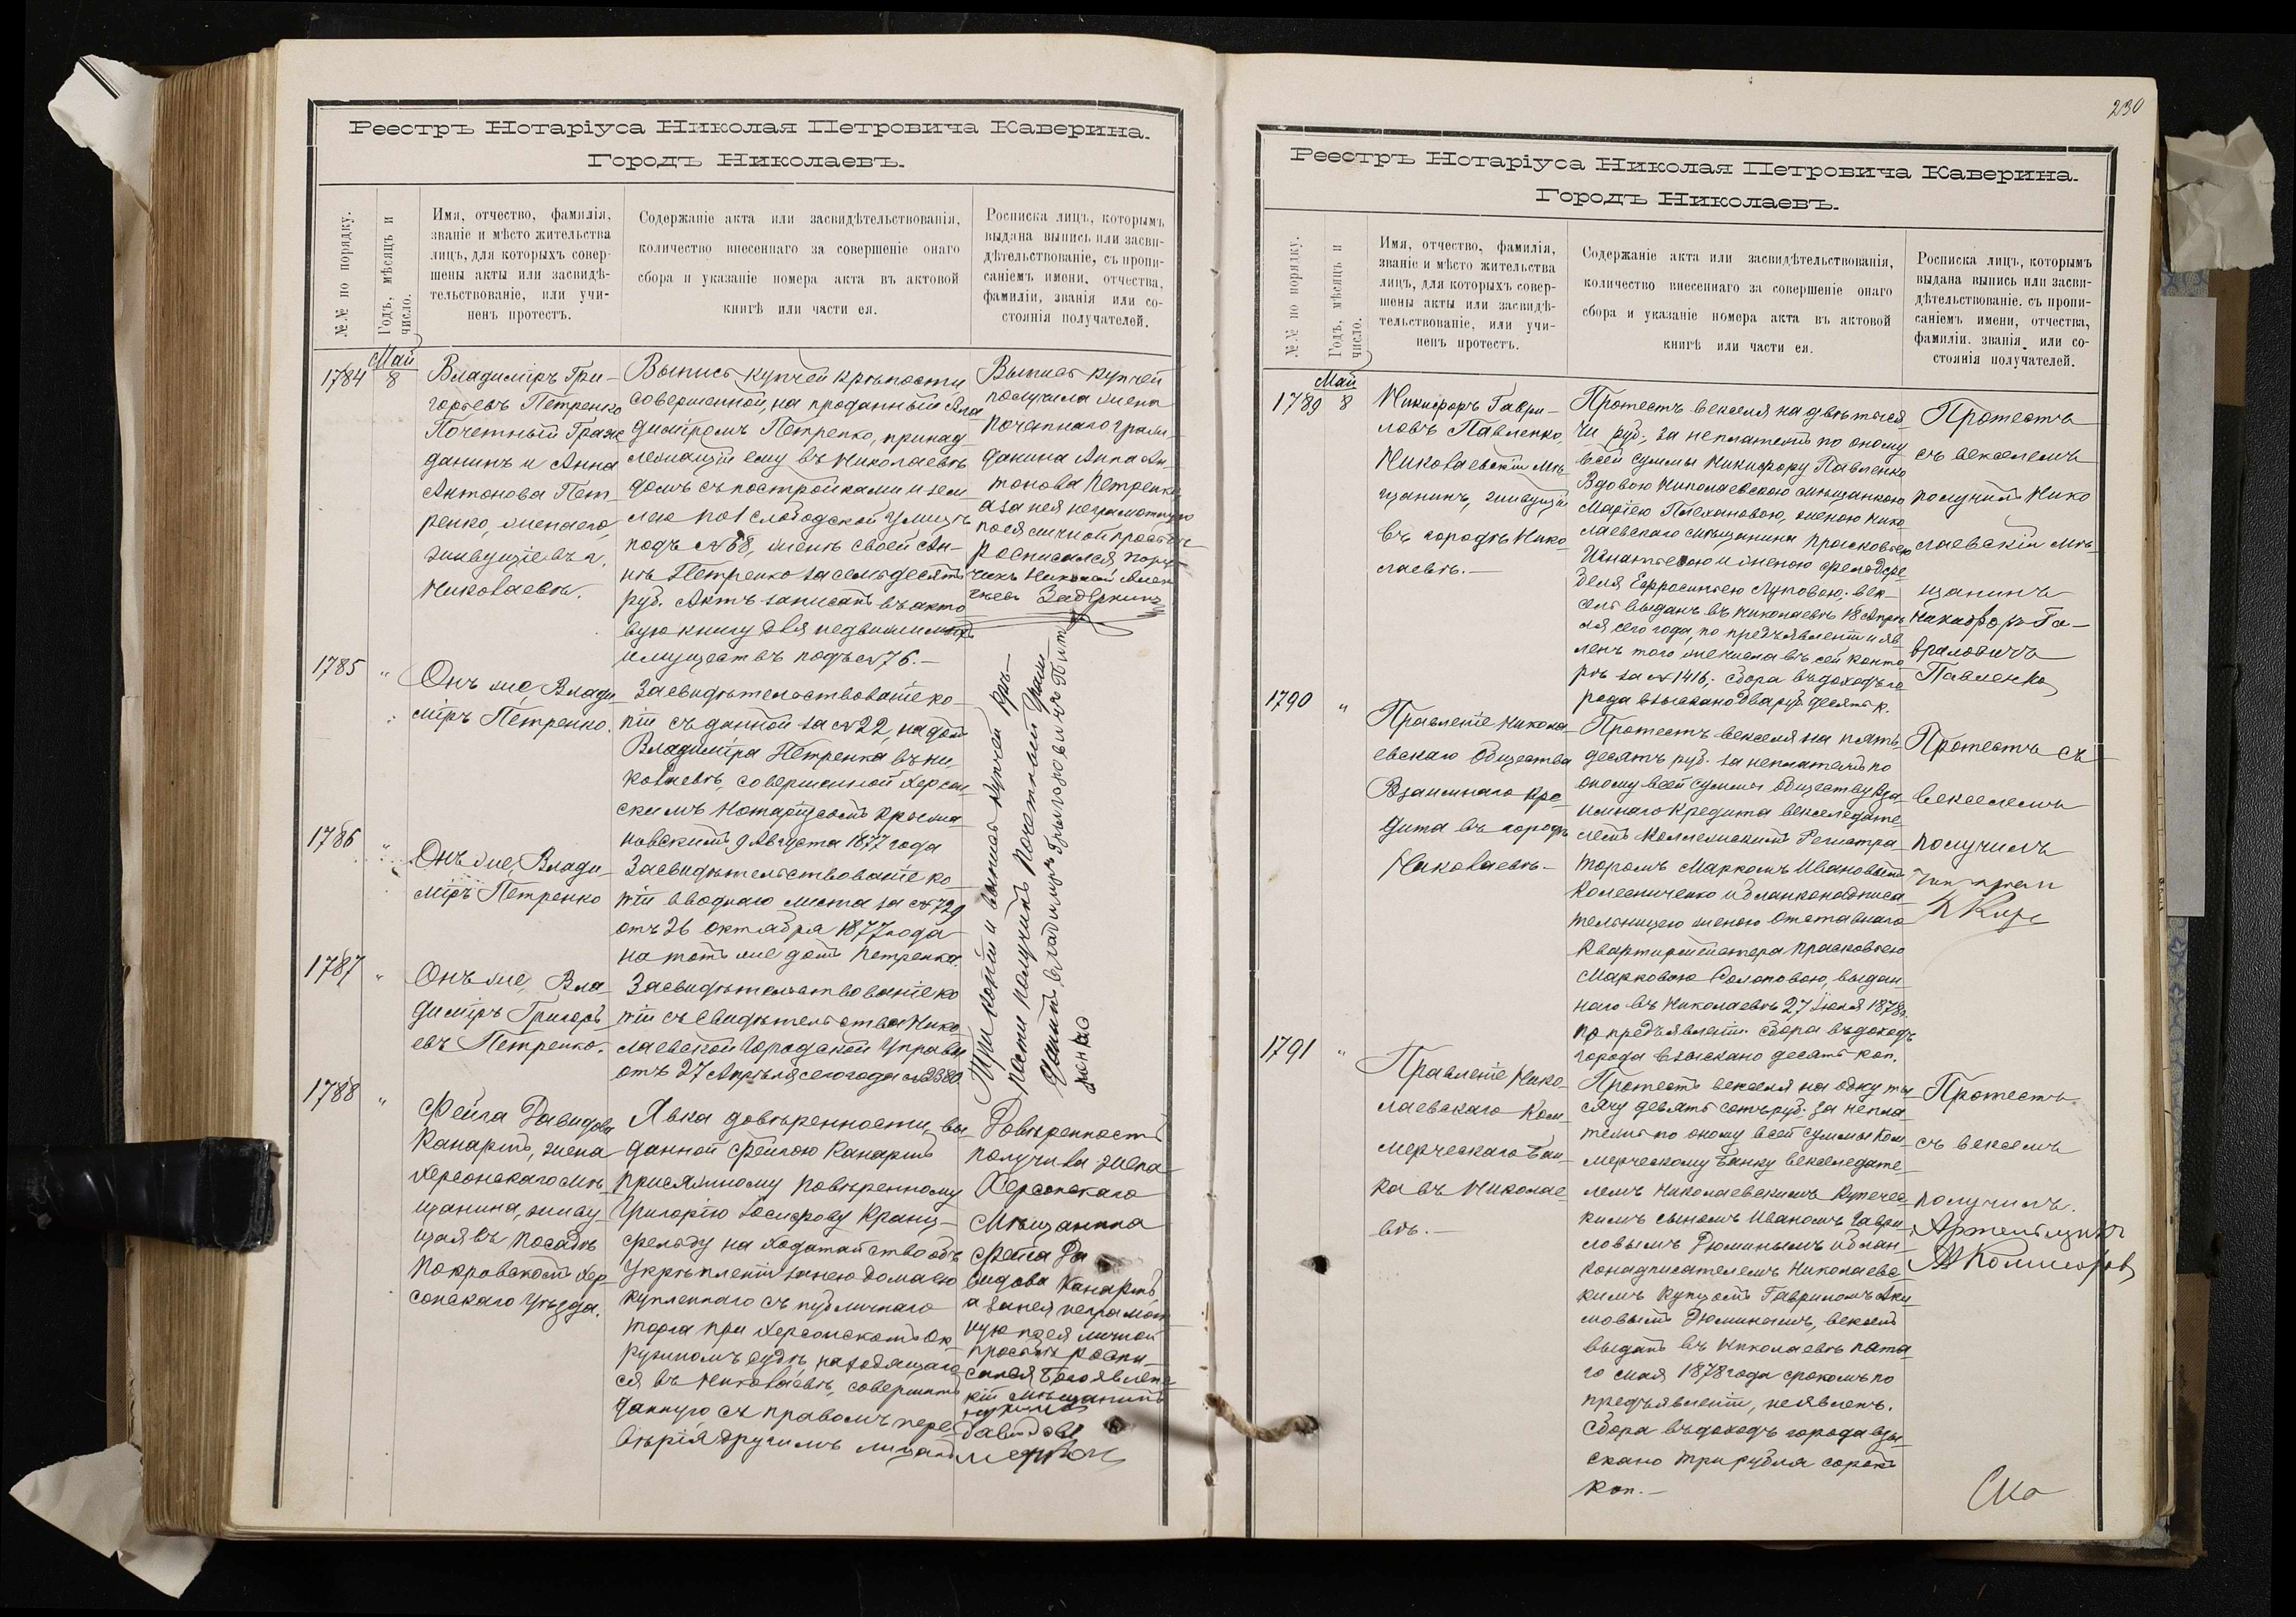 Реестръ Нотаріуса Николая Петровича Каверина.
Городъ Николаевъ.
№№ по порядку.
Годъ, мѣсяцъ и
число.
Имя, отчество, фамилія,
званіе и мѣсто жительства
лицъ, для которыхъ совер-
шены акты или засвидѣ-
тельствованіе, или учи-
ненъ протестъ.
Содержаніе акта или засвидѣтельствованія,
количество внесеннаго за совершеніе онаго
сбора и указаніе номера акта въ актовой
книгѣ или части ея.
Росписка лицъ, которымъ
выдана выпись или засви-
дѣтельствованіе, съ пропи-
саніемъ имени, отчества,
фамиліи, званія или со-
стоянія получателей.
1784
Май
8
Владиміръ Гри-
горьевъ Петренко
Почетный Граж
данинъ и Анна
Антонова Пет-
ренко, жена его,
живущіе въ г.
Николаевѣ.
Выпись купчей крѣпости
совершенной, на проданный Вла
диміромъ Петренко, принад
лежащій ему въ Николаевѣ
домъ съ постройками и зем
лею по 1 слободской улицѣ
подъ № 68, женѣ своей Ан-
нѣ Петренко за семьдесятъ
руб. Актъ записанъ въ акто
вую книгу для недвижимыхъ
имуществъ подъ № 76.—
Выпись купчей
получила жена
Почетнаго граж-
данина Анна Ан-
тонова Петренко
а за нея неграмотную
по ея личной просьбѣ
росписался
Николай
1785 "
Онъ же, Влади
міръ Петренко.
Засвидѣтельствованіе ко-
піи съ данной за № 22, на домъ
Владиміра Петренка въ Ни-
колаевѣ, совершенной Херсон-
скимъ Нотаріусомъ
9 Августа 1877 года
1786 "
Онъ же, Влади-
міръ Петренко
Засвидѣтельствованіе ко-
піи вводнаго листа за № 729
отъ 26 октября 1877 года
на тотъ же домъ Петренка.
1787 "
Онъ же, Вла-
диміръ Григорь
евъ Петренко.
Засвидѣтельствованіе ко
піи съ Свидѣтельства Нико-
лаевской Городской Управы
отъ 27 Апрѣля сего года № 2380
Три копіи и выпись купчей крѣ-
пости получилъ Почетный Граж-
данинъ Владимиръ Григорьевичъ Пит
ренко
1788 "
Фейга Давидова
Канаритъ, жена
Херсонскаго мѣ-
щанина, живу-
щая въ посадѣ
Покровскомъ Хер-
сонскаго Уѣзда.
Явка довѣренности, вы-
данной Фейгою Канаритъ
присяжному повѣренному
Григорію Іосифову Кранц-
фельду на ходатайство объ
укрѣпленіи за нею дома ею
купленнаго съ публичнаго
торга при Херсонскомъ Ок-
ружномъ судѣ, находящаго-
ся въ Николаевѣ, совершить
данную съ правомъ пере-
вѣрія другимъ лицамъ
Довѣренность
получила жена
Херсонскаго
Мѣщанина
Фейга Да
видова Канаритъ,
а за нея неграмот
ную по ея личной
просьбѣ роспи-
сался Богоявлен-
кій мѣщанинъ
Давидовъ
230
Реестръ Нотаріуса Николая Петровича Каверина.
Городъ Николаевъ.
№№ по порядку.
Годъ, мѣсяцъ и
число.
Имя, отчество, фамилія,
званіе и мѣсто жительства
лицъ, для которыхъ совер-
шены акты или засвидѣ-
тельствованіе, или учи-
ненъ протестъ.
Содержаніе акта или засвидѣтельствованія,
количество внесеннаго за совершеніе онаго
сбора и указаніе номера акта въ актовой
книгѣ или части ея.
Росписка лицъ, которымъ
выдана выпись или засви-
дѣтельствованіе. съ пропи-
саніемъ имени, отчества,
фамиліи. званія или со-
стоянія получателей.
1789
Май
8
Никифоръ Гаври-
ловъ Павленко,
Николаевскій мѣ-
щанинъ, живущій
въ городѣ Нико-
лаевѣ.—
Протестъ векселя на двѣ тыся
чи руб., за неплатежъ по оному
всей суммы Никифору Павленко
Вдовою Николаевскою мѣщанкою
Маріею Плехановою, женою Нико
лаевскаго мѣщанина Прасковьею
Игнатьевою и женою фельдфе-
беля Ефросиньею Луговою; век-
сель выданъ въ Николаевѣ 18 Апрѣ
ля сего года, по предъявленіи и яв
ленъ того же числа въ сей конто
рѣ за № 1416; сбора въ доходъ го
рода взыскано два руб. десять к.
Протестъ
съ векселемъ
получилъ Нико
лаевскій мѣ-
щанинъ
Никифоръ Га-
вриловичъ
Павленко
1790 "
Правленіе Никола
евскаго Общества
Взаимнаго Кре-
дита въ городѣ
Николаевѣ.—
Протестъ векселя на пять-
десятъ руб. за неплатежъ по
оному всей суммы Обществу Вза-
имнаго Кредита векселедате-
лемъ Коллежскимъ Регистра-
торомъ Маркомъ Ивановымъ
Колесниченко и бланконадписа-
тельницею женою отставнаго
Квартирмейстера Прасковьею
Марковою Солоповою, выдан-
наго въ Николаевѣ 27 Іюля 1878 г.
по предъявленіи. Сбора въ доходъ
города взыскано десять коп.
Протестъ съ
векселемъ
получилъ
1791 "
Правленіе Нико-
лаевскаго Ком-
мерческаго Бан-
ка въ Николае-
вѣ.—
Протестъ векселя на одну ты
сячу девять сотъ руб. за непла
тежъ по оному всей суммы Ком-
мерческому Банку векселедате-
лемъ Николаевскимъ Купечес-
кимъ сыномъ Иваномъ Гаври
ловымъ Дюминымъ и блан-
конадписателемъ Николаевс-
кимъ Купцомъ Гавриломъ Аки
мовымъ Дюминымъ, вексель
выданъ въ Николаевѣ пята-
го мая 1878 года срокомъ по
предъявленіи, неявленъ.
Сбора въ доходъ города взы-
скано три рубля сорокъ
коп.—
Протестъ
съ векселемъ
получилъ.
Артельщикъ